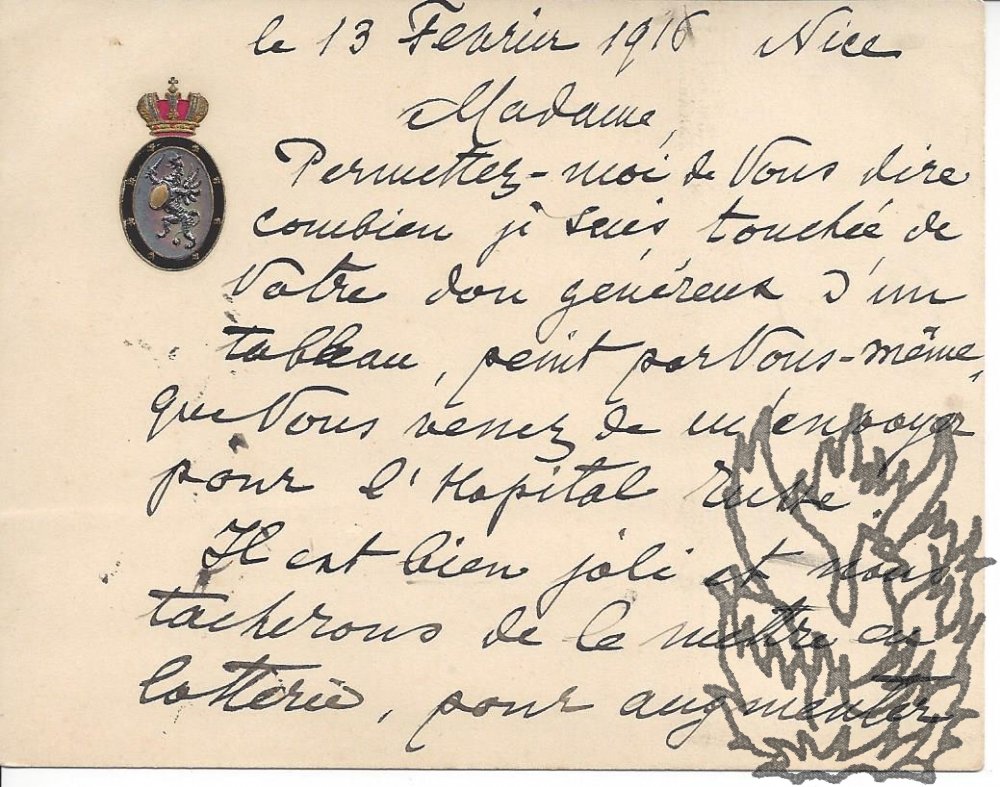 le 13 Fevrier 1916 Nice
Madame,
Permettez-moi de Vous dire
combien je suis touchée de
Votre don généreux d'un
tableau, peint par Vous-même,
que Vous venez de m'envoyer
pour l'Hopital russe.
Il est bien joli et nous
tacherons de le mettre en
lotterie, pour augmenter